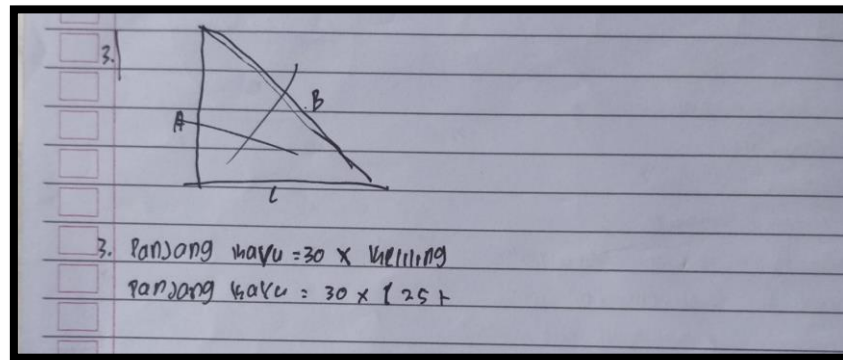 3.
A
B
C
3. Panjang kayu = 30 x keliling
Panjang kayu = 30 x (25 +